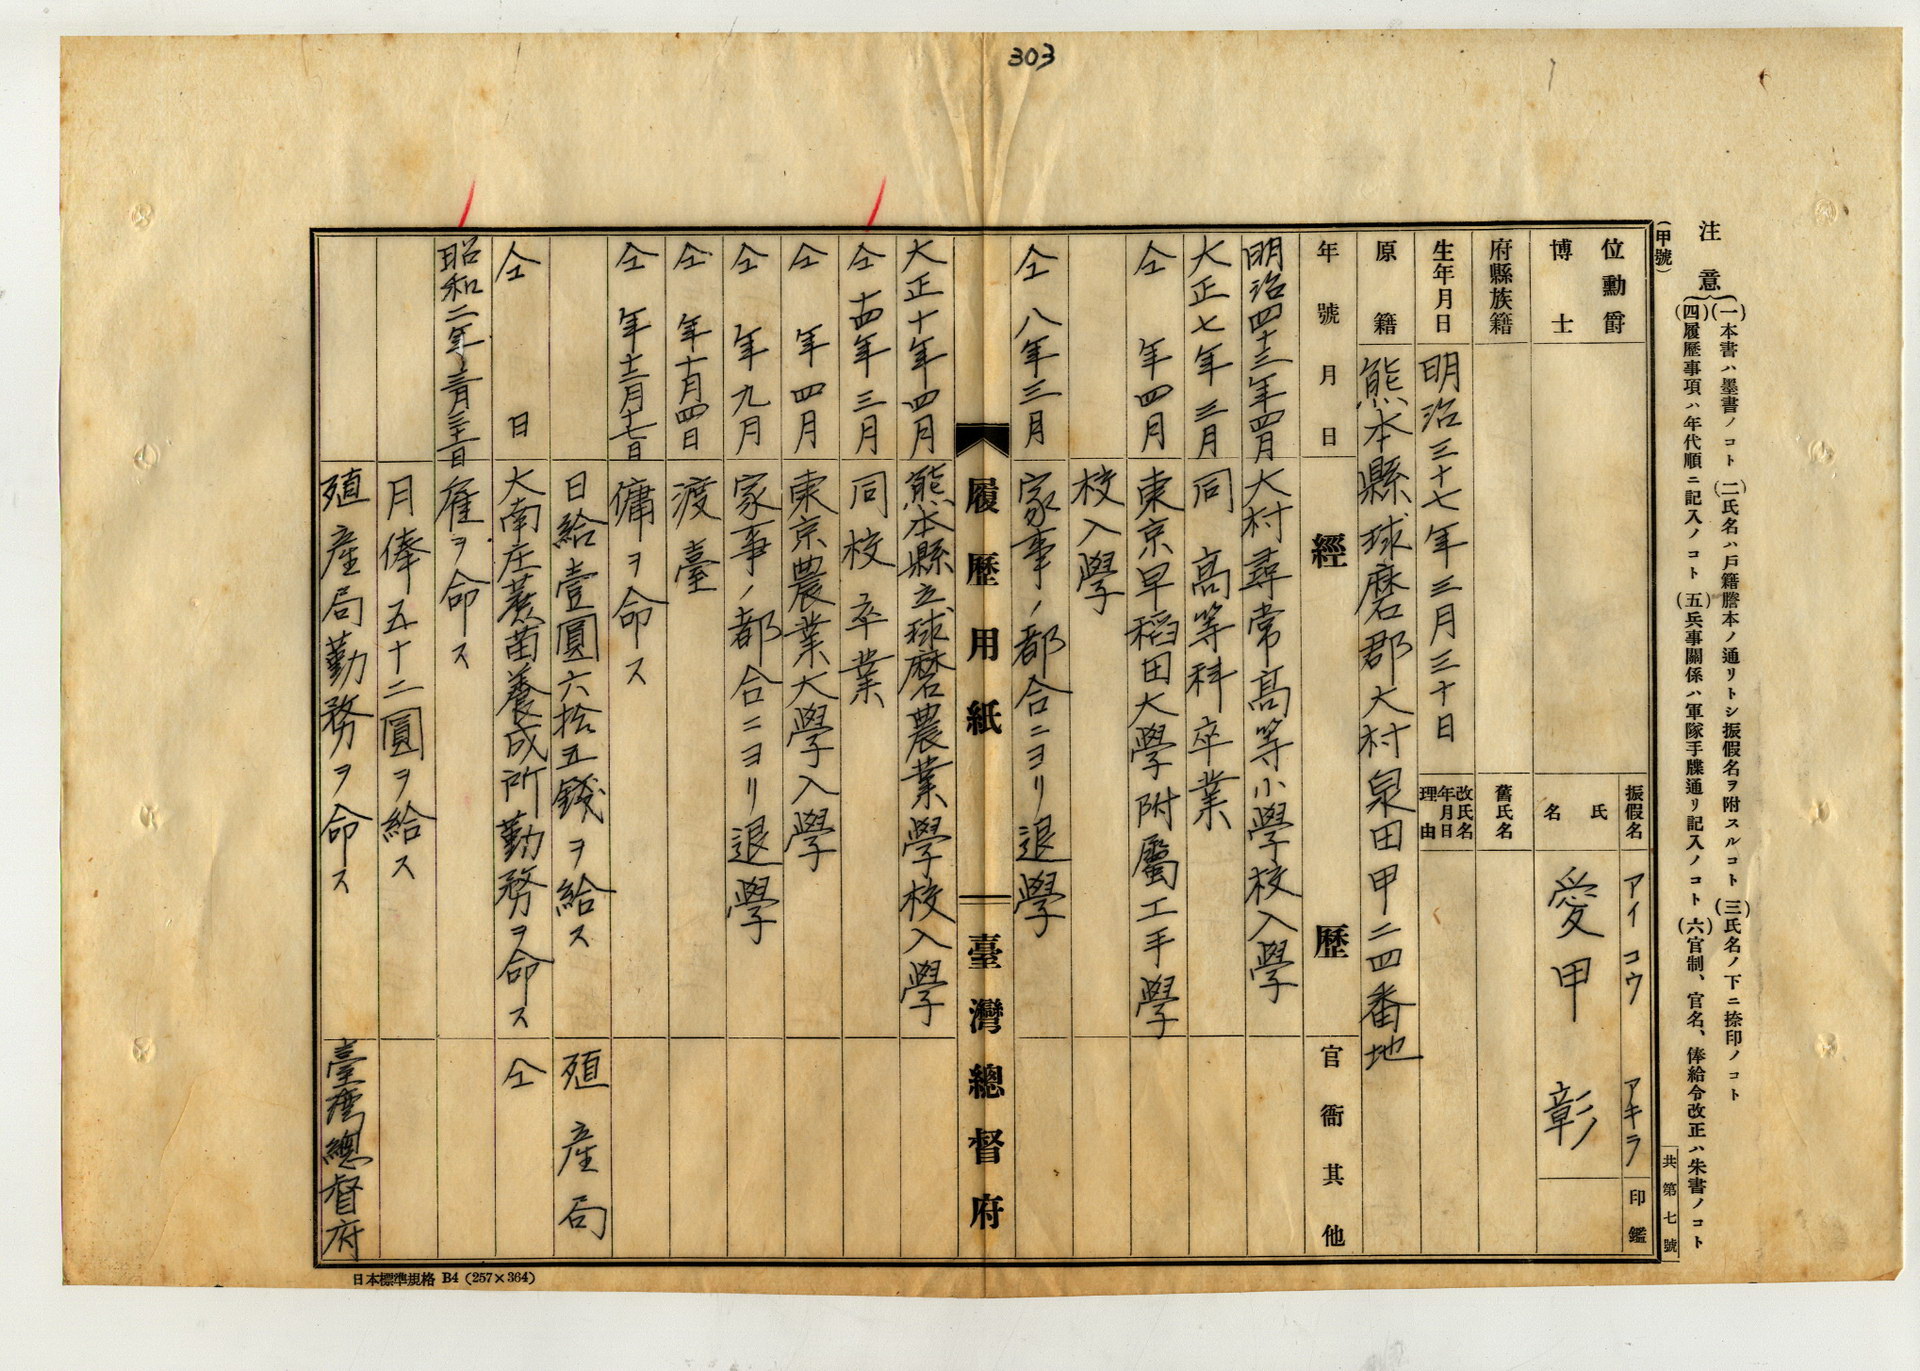 303
注意
(一)本書ハ墨書ノコト(二)氏名ハ戸籍謄本ノ通リトシ振假名ヲ附スルコト(三)氏名ノ下ニ捺印ノコト
(四)履歴事項ハ年代順ニ記入ノコト(五)兵事關係ハ軍隊手牒通リ記入ノコト(六)官制、官名、俸給令改正ハ朱書ノコト
(甲號)
共第七號
位勳爵
博士
振假名 アイ コウ アキラ
氏名 愛甲 彰
印鑑
府縣族籍
舊氏名
生年月日 明治三十七年三月三十日
改氏名年月日理由
原籍 熊本縣球磨郡大村泉田甲二四番地
年號月日 經歷 官衙其他
明治四十三年四月 大村尋常高等小學校入學
大正七年三月 同 高等科卒業
仝 年四月 東京早稻田大學附屬工手學
校入學
仝 八年三月 家事ノ都合ニヨリ退學
履歷用紙 臺灣總督府
大正十年四月 熊本縣立球磨農業學校入學
仝 十四年三月 同校卒業
仝 年四月 東京農業大學入學
仝 年九月 家事ノ都合ニヨリ退學
仝 年十月四日 渡臺
仝 年十二月十七日 傭ヲ命ス
日給壹圓六拾五錢ヲ給ス 殖產局
仝 日 大南庄蔗苗養成所勤務ヲ命ス 仝
昭和二年三月三十一日 雇ヲ命ス
月俸五十二圓ヲ給ス
殖產局勤務ヲ命ス 臺灣總督府
日本標準規格 B4 (257×364)